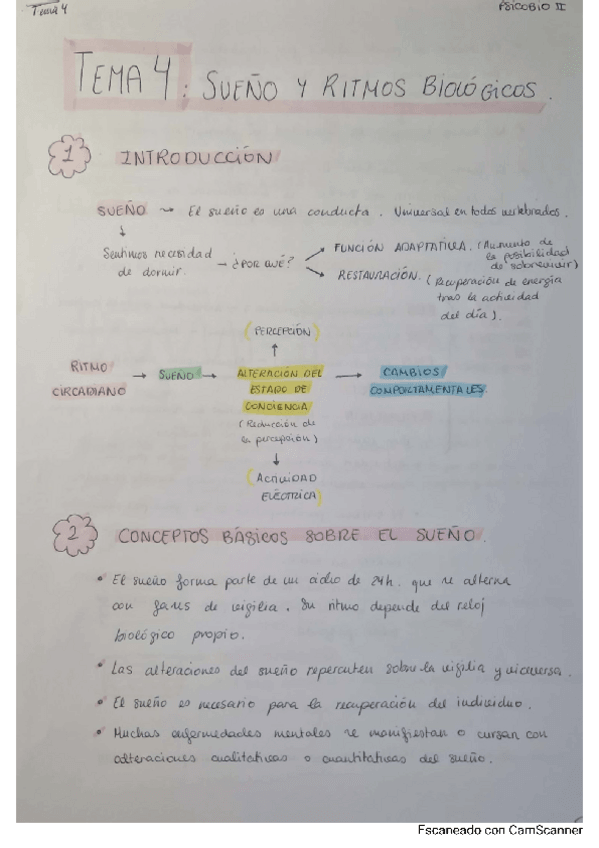 Tema 4
PSICOBIO II
TEMA 4: SUEÑO Y RITMOS BIOLÓGICOS.
1 INTRODUCCIÓN
SUEÑO → El sueño es una conducta. Universal en todos vertebrados.
↓
Sentimos necesidad
de dormir.
→ ¿POR QUÉ?
FUNCIÓN ADAPTATIVA. (Aumento de
la posibilidad
de sobrevivir)
RESTAURACIÓN. (Recuperación de energía
tras la actividad
del día).
(PERCEPCIÓN)
↑
RITMO
CIRCADIANO
→ SUEÑO →
ALTERACIÓN DEL
ESTADO DE
CONCIENCIA
(Reducción de
la percepción)
→ CAMBIOS
COMPORTAMENTALES.
↓
(ACTIVIDAD
ELÉCTRICA)
2 CONCEPTOS BÁSICOS SOBRE EL SUEÑO.
• El sueño forma parte de un ciclo de 24h. que se alterna
con fases de vigilia. Su ritmo depende del reloj
biológico propio.
• Las alteraciones del sueño repercuten sobre la vigilia y viceversa.
• El sueño es necesario para la recuperación del individuo.
• Muchas enfermedades mentales se manifiestan o cursan con
alteraciones cualitativas o cuantitativas del sueño.
Escaneado con CamScanner